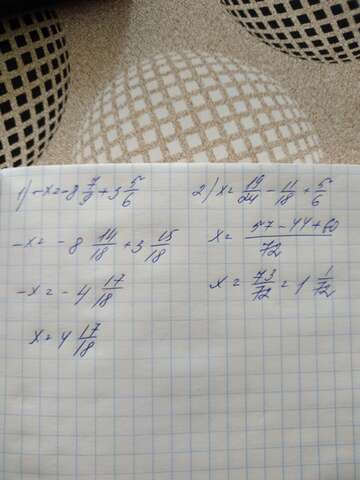 1) -x=-8 7/9+3 5/6
-x=-8 14/18+3 15/18
-x=-4 17/18
x=4 17/18
2) x=19/24-11/18+5/6
x=57-44+60/72
x=73/72=1 1/72